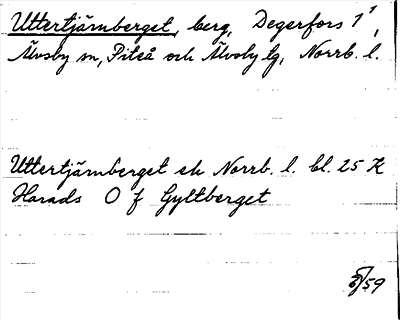 Uttertjärnberget, berg, Degerfors 1¹,
Älvsby sn, Piteå och Älvsby tg, Norrb. l.
Uttertjärnberget ek Norrb. l. bl. 25 K
Harads O f Gyltberget
59